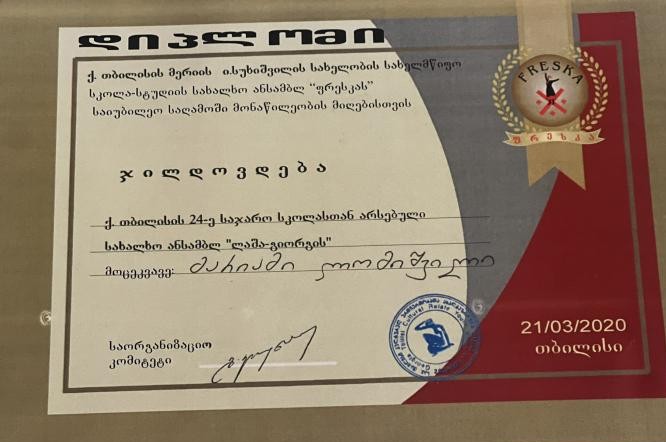 დიპლომი
ქ. თბილისის მერიის ი.სუხიშვილის სახელობის სახელმწიფო
სკოლა-სტუდიის სახალხო ანსამბლ "ფრესკას"
საიუბილეო საღამოში მონაწილეობის მიღებისთვის
FRESKA
ფრესკა
ჯილდოვდება
ქ. თბილისის 24-ე საჯარო სკოლასთან არსებული
სახალხო ანსამბლ "ლაშა-გიორგის"
მოცეკვავე: მარიამი ლომიშვილი
საორგანიზაციო
კომიტეტი
21/03/2020
თბილისი